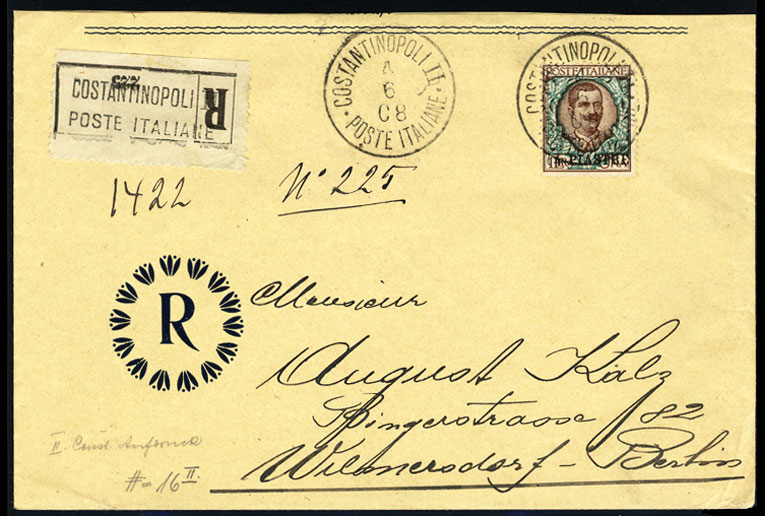 225
COSTANTINOPOLI
POSTE ITALIANE
R
COSTANTINOPOLI II
4
6
08
POSTE ITALIANE
COSTANTINOPOLI
POSTE ITALIANE
PIASTRE
1422
Nº 225
R
Monsieur
August Kalz
Spingerstrasse 82
Wilmersdorf - Berlin
II.
#= 16 II.